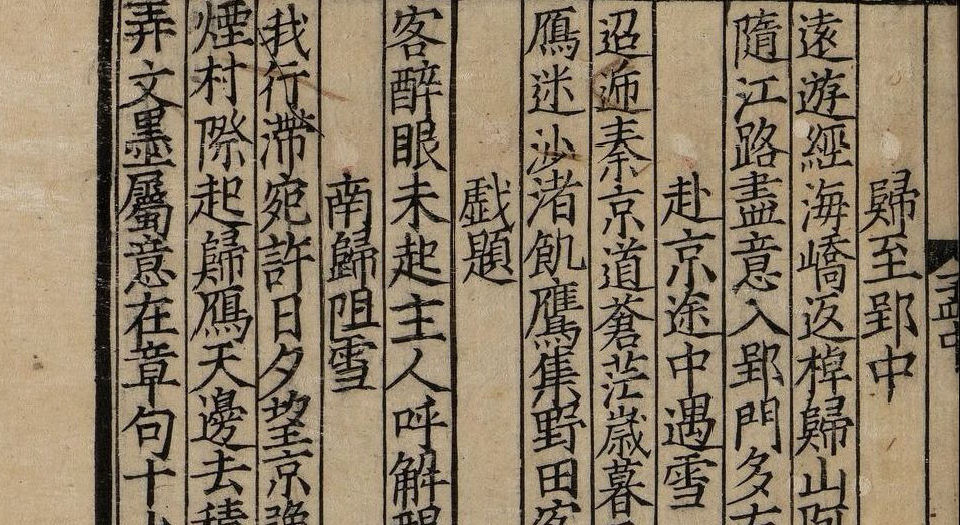 歸至郢中
遠遊經海嶠返棹歸山阿
隨江路盡意入郢門多
赴京途中遇雪
迢遞秦京道蒼茫歲暮
鴈迷沙渚飢鷹集野田客
戲題
客醉眼未起主人呼解酲
南歸阻雪
我行滯宛許日夕望京豫
煙村際起歸鴈天邊去積
弄文墨屬意在章句十